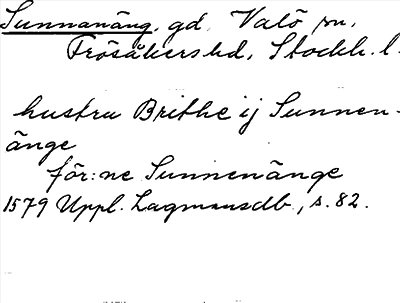 Sunnanäng, gd, Valö sn,
Frösåkers hd, Stockh. l.
hustru Brithe ij Sunnen-
änge
för:ne Sunnenänge
1579 Uppl. Lagmansdb., s. 82.